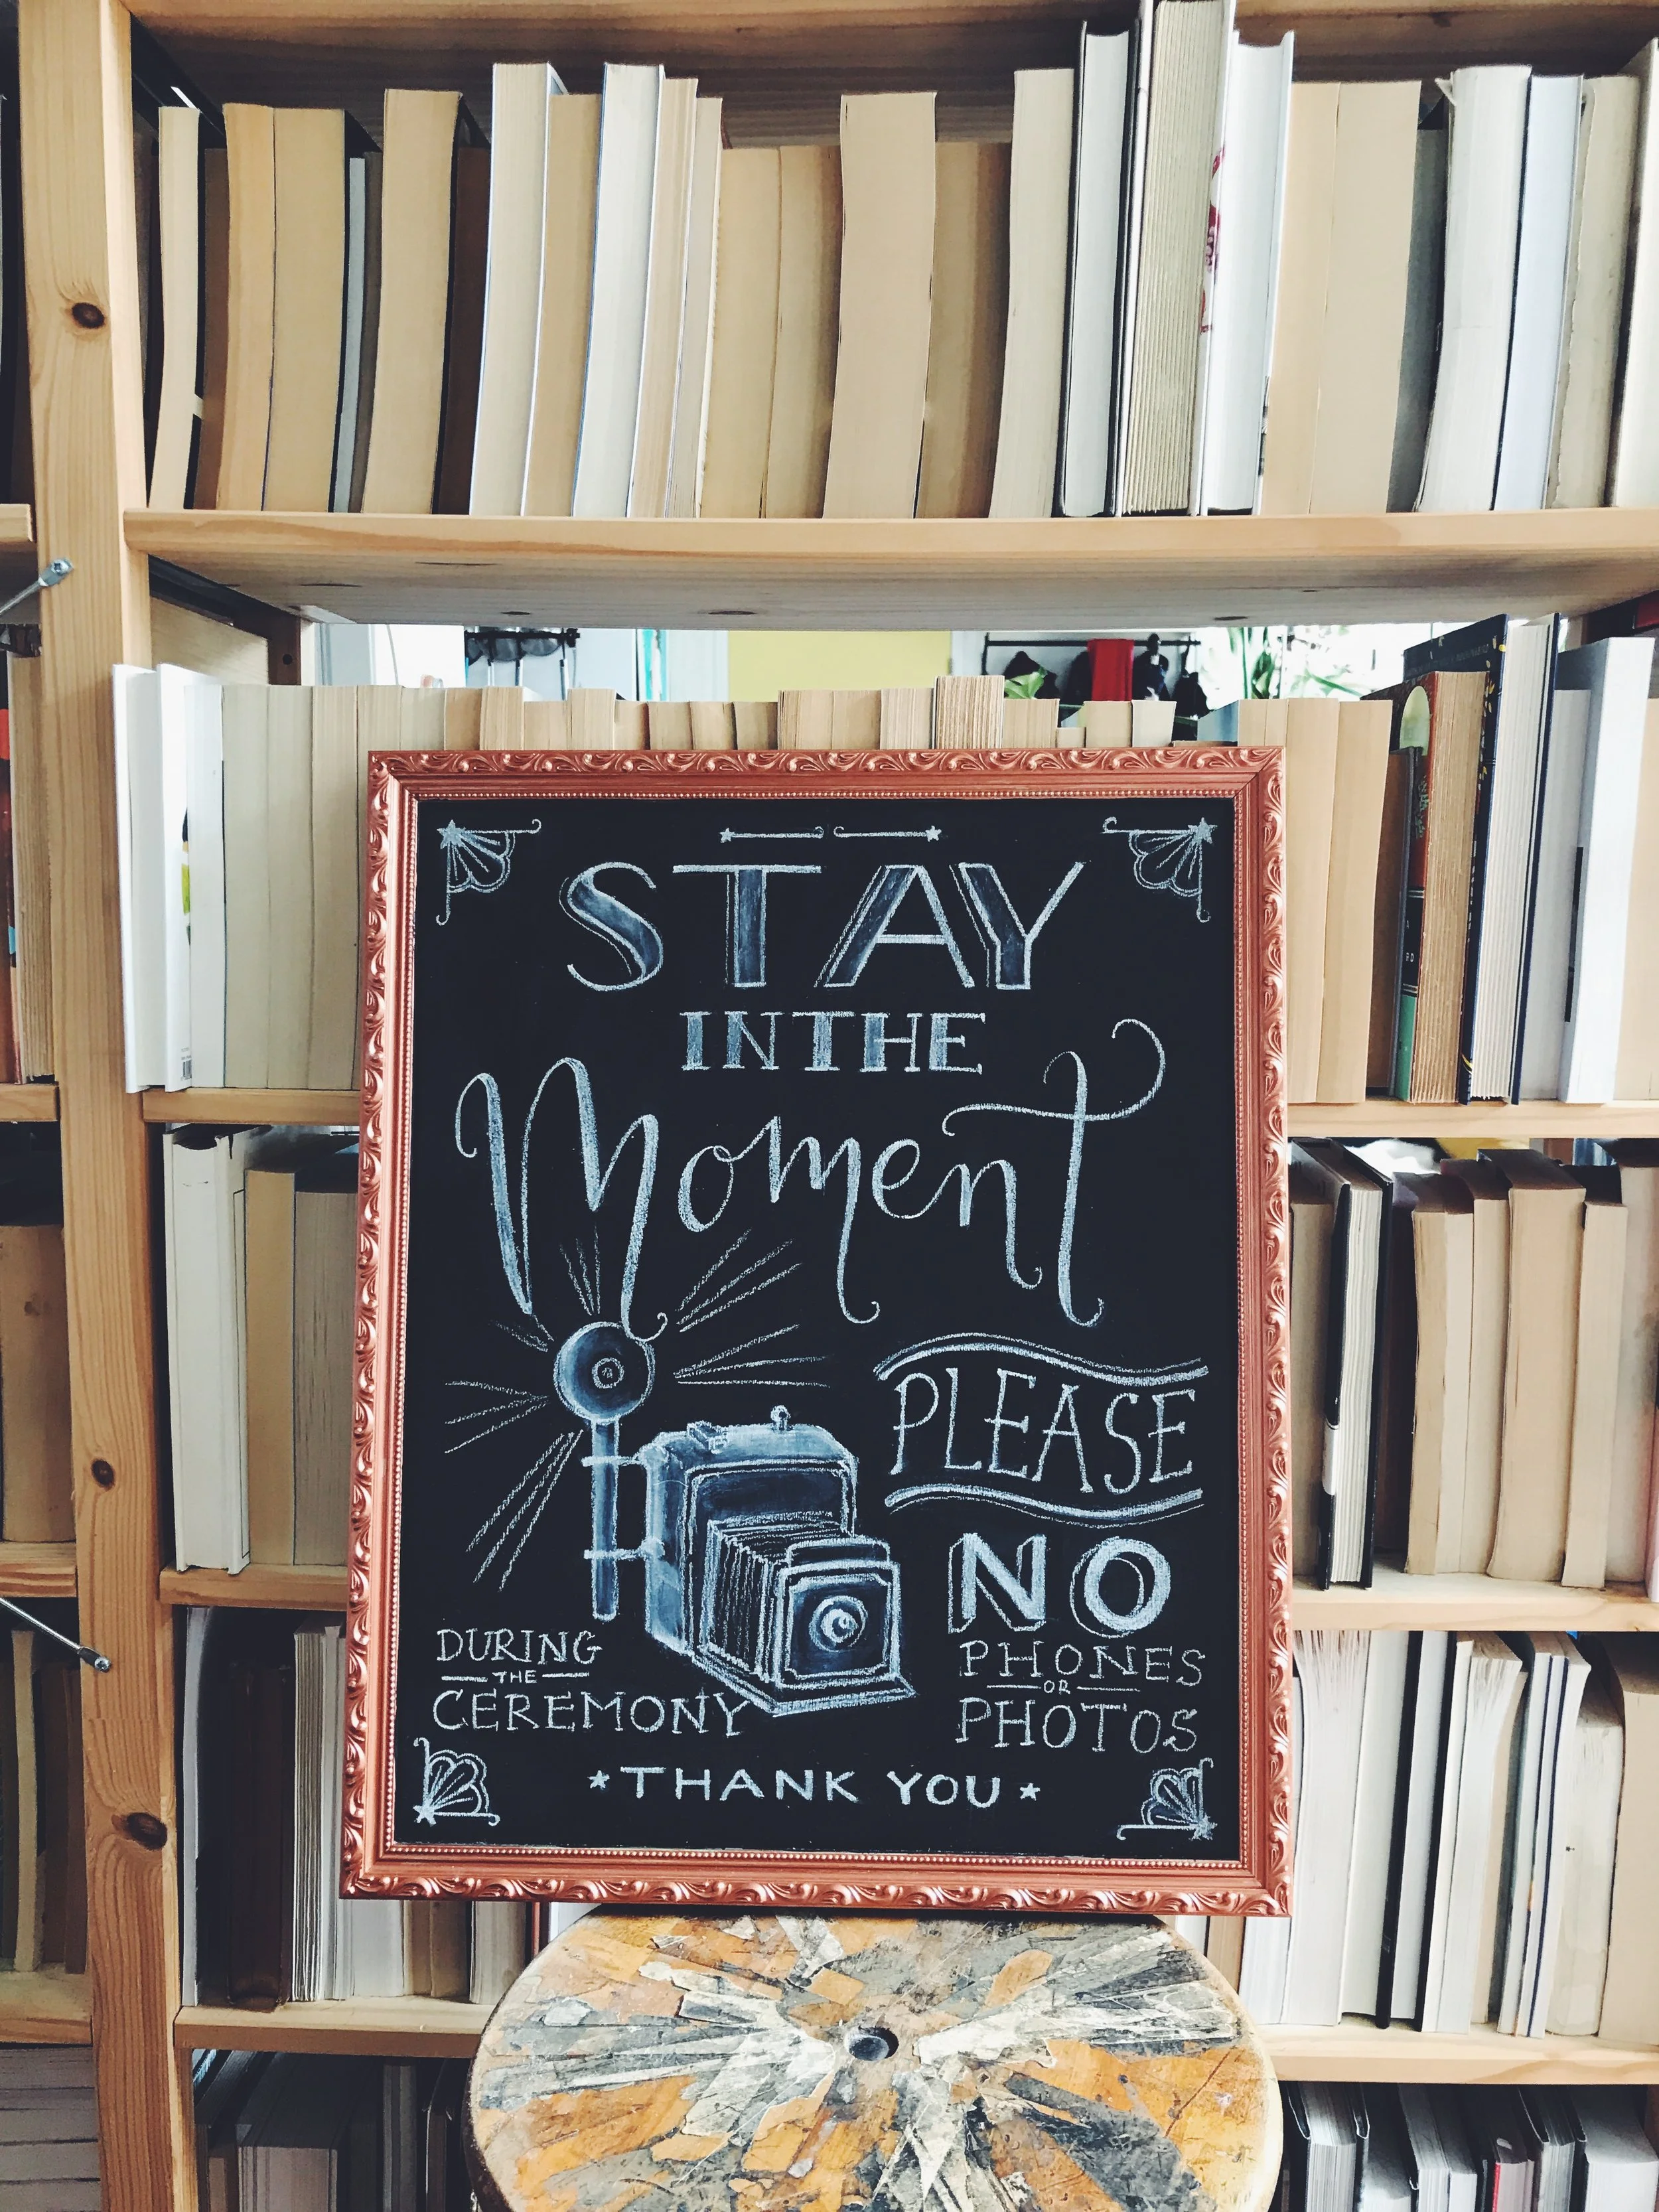 STAY
IN THE
Moment
PLEASE
NO
PHONES
OR
PHOTOS
DURING
THE
CEREMONY
*THANK YOU*